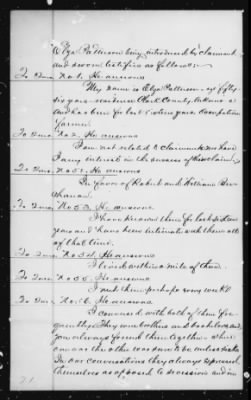 Elza Patterson being introduced by claimant
and sworn testifies as follows:
To Int. No 1. He answers
My name is Elza Patterson age fifty
six years residence Clark County, Arkansas
and has been for last years Occupation
Farmer
To Int. No 2. He answers
I am not related to claimants nor have
I any interest in the success of this claim
To Int. No 51. He answers
In favor of Robert and William Buchanan.
To Int. No 53. He answers
I have known them for last sixteen
years and have been intimate with them all
of that time.
To Int. No 54. He answers
I lived within a mile of them.
To Int. No 55. He answers
I met them perhaps every week
To Int. No. 56. He answers
I conversed with both of them frequently. They were brothers and bachelors and
you always found them together when
one was the other was sure to be
In our conversations they always expressed
themselves as opposed to secession and in